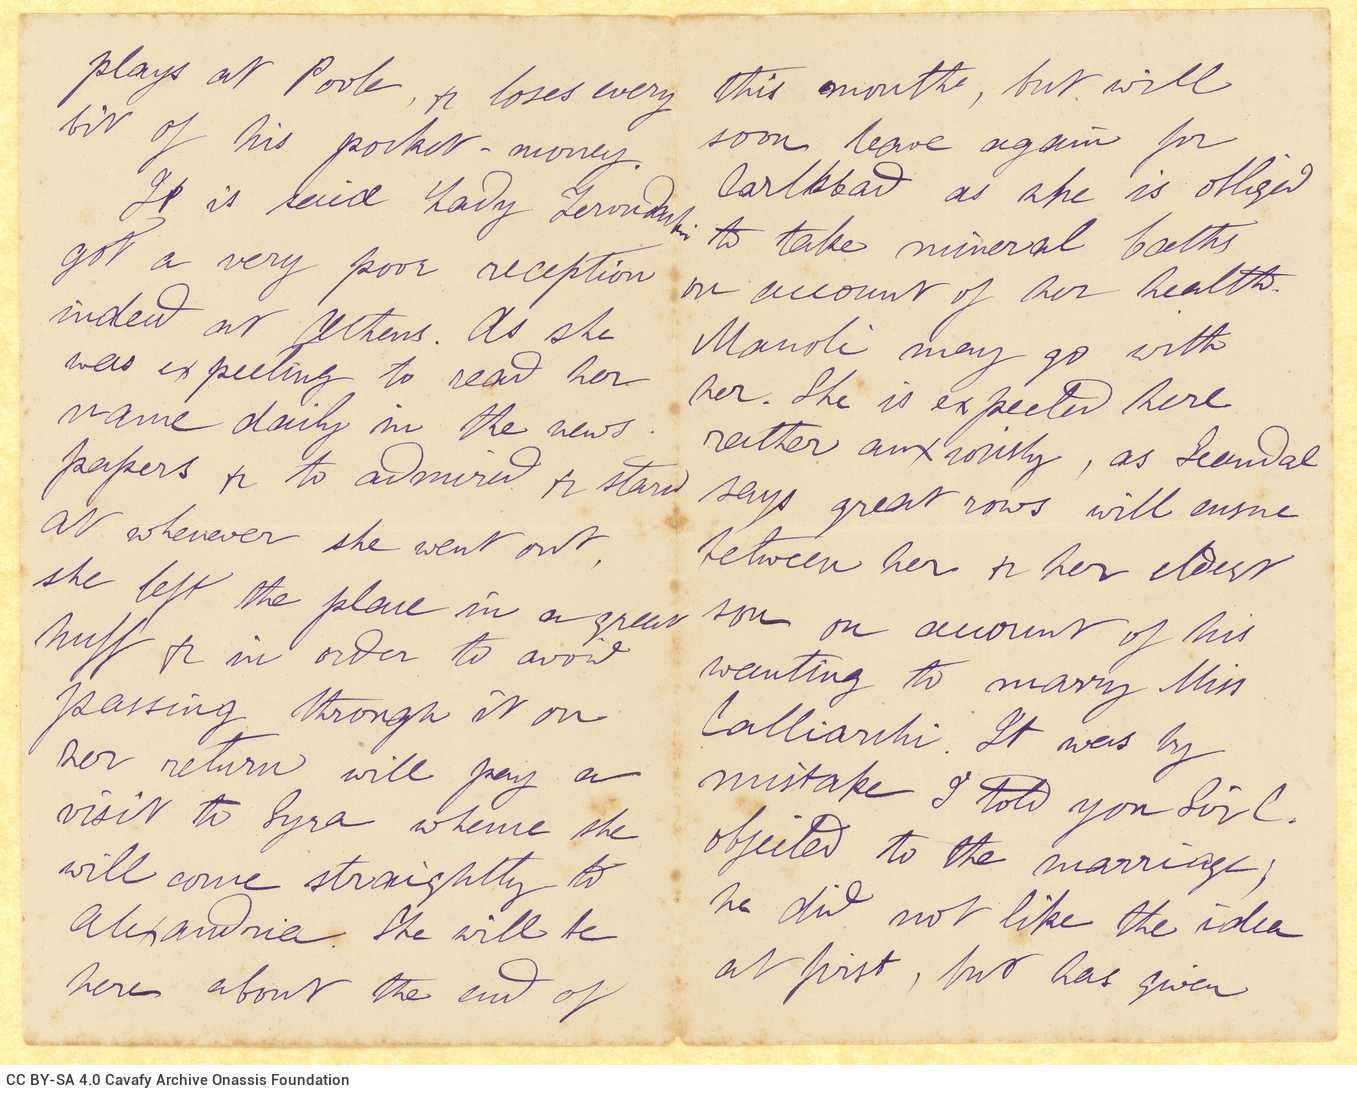 plays at Poole, & loses every
bit of his pocket-money.
It is said Lady
got a very poor reception
indeed at Athens. As she
was expecting to read her
name daily in the news-
papers & to admired & stared
at whenever she went out,
she left the place in a great
huff & in order to avoid
passing through it on
her return will pay a
visit to Syra whence she
will come straightly to
Alexandria. She will be
here about the end of
this mouthe, but will
soon leave again for
Carlsbad as she is obliged
to take mineral baths
on account of her health.
Manoli may go with
her. She is expected here
rather anxiously, as Scandal
says great rows will ensue
between her & her eldest
son on account of his
wanting to marry Miss
Calliarchi. It was by
mistake I told you Sir C.
objected to the marriage;
he did not like the idea
at first, but has given
CC BY-SA 4.0 Cavafy Archive Onassis Foundation